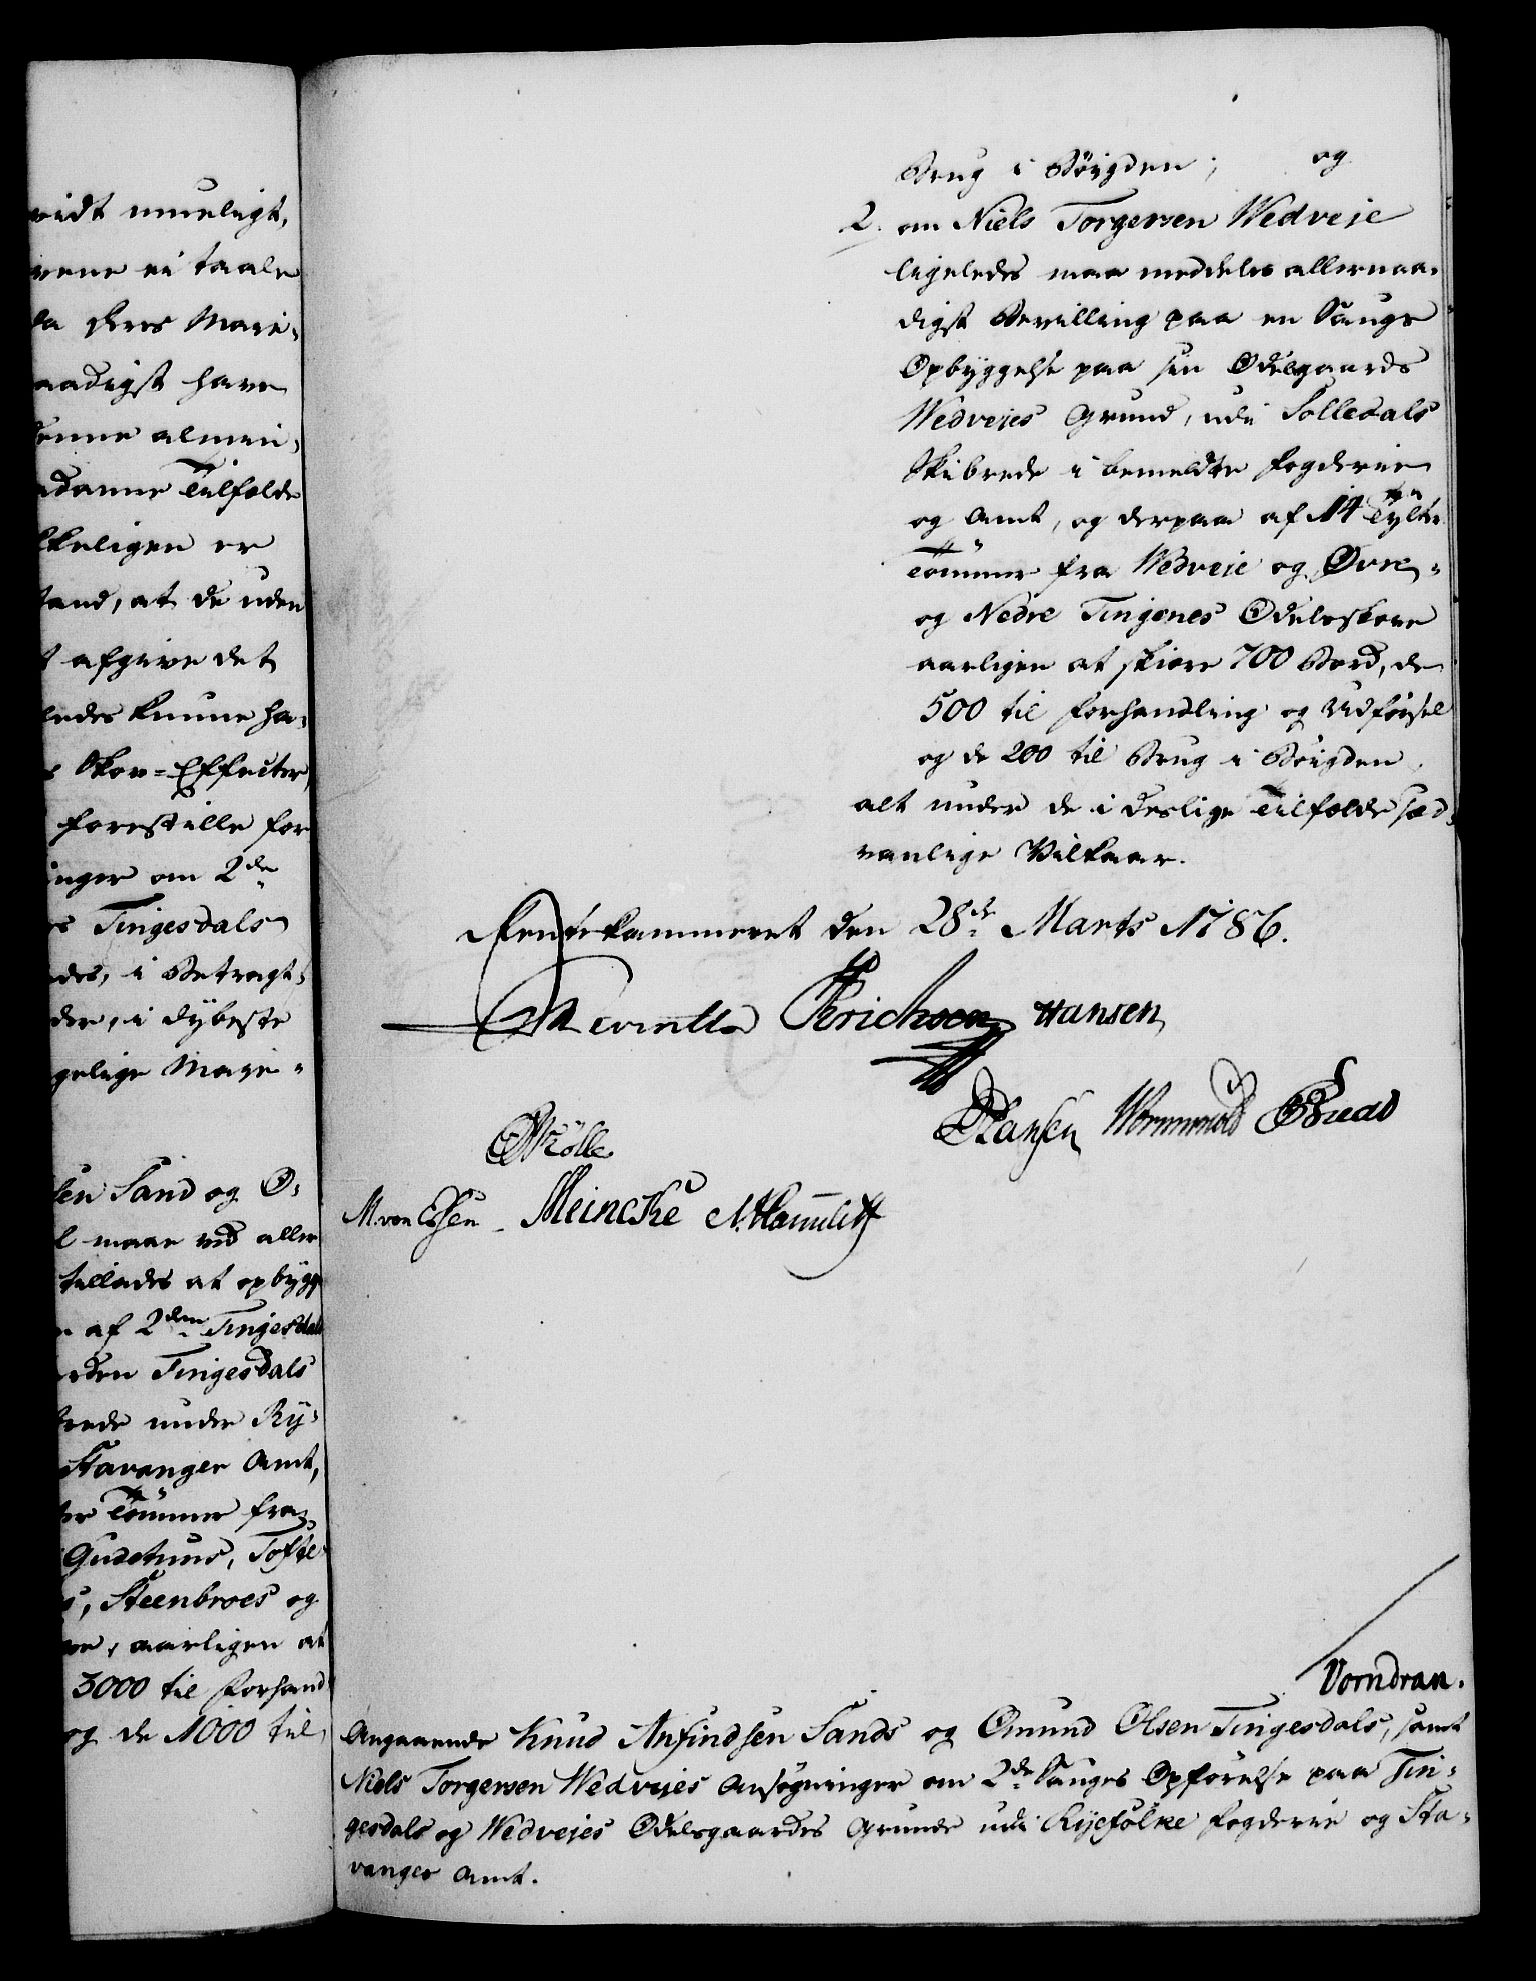 vidt mueligt,
vene ei taale
da Deres Maje-
aadigst have
denne almin-
adanne Tilfælde
keligen er
tand, at de uden
t afgive det
ledes kunne ha-
s Skov-Effecter,
forestille for
inger om 2de
s Tingesdals
des, i Betragt-
der, i dybeste
gelige Maje-
sen Sand og O-
l maae ved aller
tillades at opbygge
n af 2den Tingesdals
rden Tingesdals
brede under Ry-
Stavanger Amt,
ter Tømmer fra
Gudetuns, Tofte
s, Steenbroes og
ve, aarligen at
3000 til Forhand
og de 1000 til
Brug i Bøygden; og
2. om Niels Torgersen Wedveje
ligeledes maa meddeles allernaa-
digst Bevilling paa en Saugs
Opbyggelse paa sin Odelsgaards
Wedvejes Grund, udi Solledals
Skibrede i bemeldte Fogderie
og Amt, og derpaa af 14 Tylter
Tømmer fra Wedveje og Øvre-
og Nedre Tingenes Odelsskove
aarligen at skiære 700 Bord, de
500 til Forhandling og Udførsel
og de 200 til Brug i Bøygden,
alt under de i deslige Tilfælde sæd-
vanlige Vilkaar.
Rentekammeret den 28de Marts 1786.
Erichsen Hansen
Hansen Wormwold
Mölle
M. von Essen Meincke
Vorndran.
Angaaende Knud Anfindsen Sands og Omund Olsen Tingesdals, samt
Niels Torgersen Wedvejes Ansøgninger om 2de Sauges Opførelse paa Tin-
gesdals og Wedvejes Odelsgaardes Grunde udi Ryefylke Fogderie og Sta-
vanger Amt.